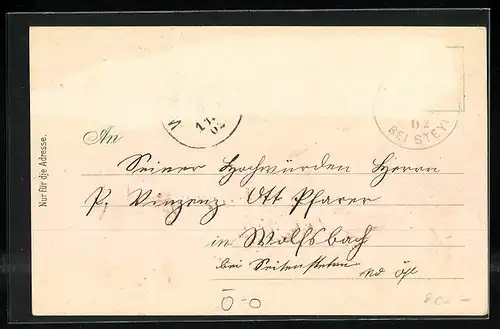 11.
02
02
BEI STEY
Nur für die Adresse.
An
Seiner Hochwürden Herrn
P. Vinzenz Ott Pfarrer
in Wolfsbach
bei Seitenstetten